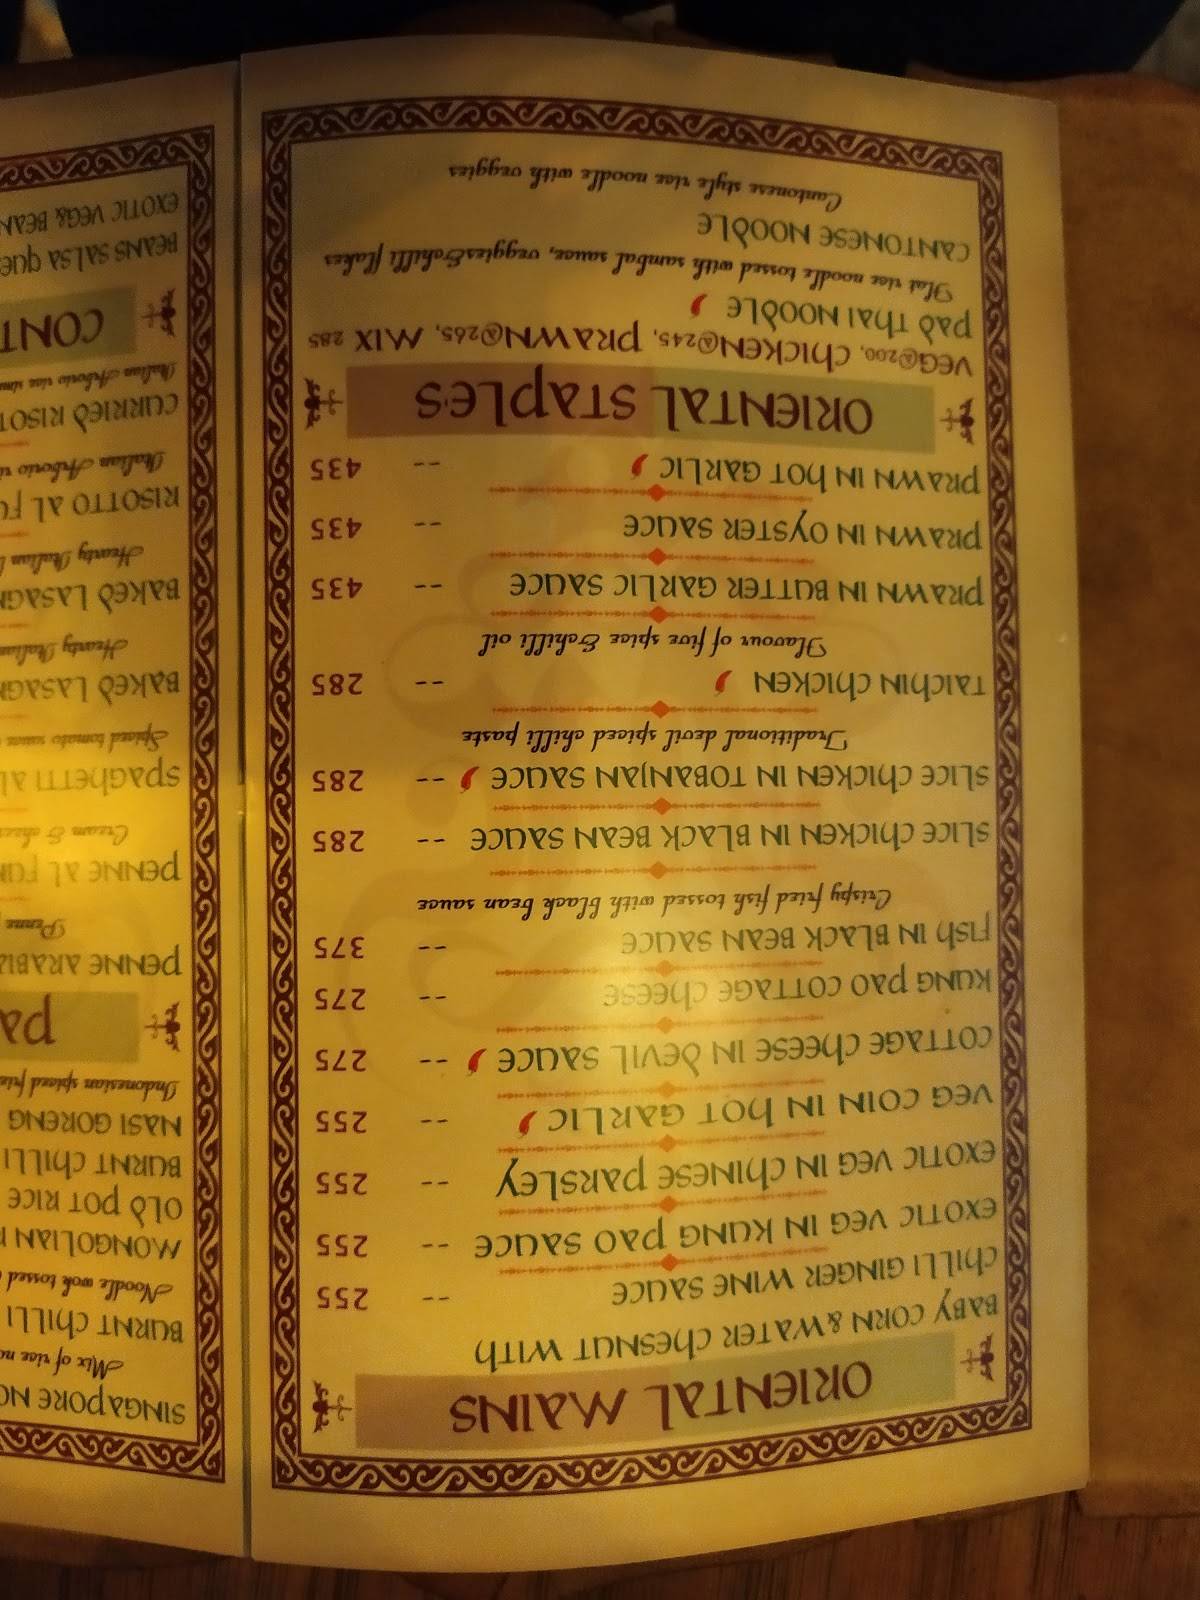 ORIENTAL MAINS
BABY CORN & WATER CHESNUT WITH
CHILLI GINGER WINE SAUCE -- 255
EXOTIC VEG IN KUNG PAO SAUCE -- 255
EXOTIC VEG IN CHINESE PARSLEY -- 255
VEG COIN IN HOT GARLIC -- 255
COTTAGE CHEESE IN DEVIL SAUCE -- 275
KUNG PAO COTTAGE CHEESE -- 275
FISH IN BLACK BEAN SAUCE -- 375
Crispy fried fish tossed with black bean sauce
SLICE CHICKEN IN BLACK BEAN SAUCE -- 285
SLICE CHICKEN IN TOBANJAN SAUCE -- 285
Traditional devil spiced chilli paste
TAICHIN CHICKEN -- 285
Flavour of five spice & chilli oil
PRAWN IN BUTTER GARLIC SAUCE -- 435
PRAWN IN OYSTER SAUCE -- 435
PRAWN IN HOT GARLIC -- 435
ORIENTAL STAPLE'S
VEG@200, CHICKEN@245, PRAWN@265, MIX 285
PAD THAI NOODLE
Flat rice noodle tossed with sambal sauce, veggies & chilli flakes
CANTONESE NOODLE
Cantonese style rice noodle with veggies
SINGAPORE
Mix of rice
BURNT CHILLI
Noodle wok tossed
MONGOLIAN
OLD POT RICE
BURNT CHILLI
NASI GORENG
Indonesian spiced
PENNE
Penne
PENNE AL
Cream & 
SPAGHETTI
Spiced tomato sauce
BAKED
Hearty
BAKED
Hearty Italian
RISOTTO AL
Italian Arborio
CURRIED
Italian Arborio rice
BEANS SALSA
EXOTIC VEG&